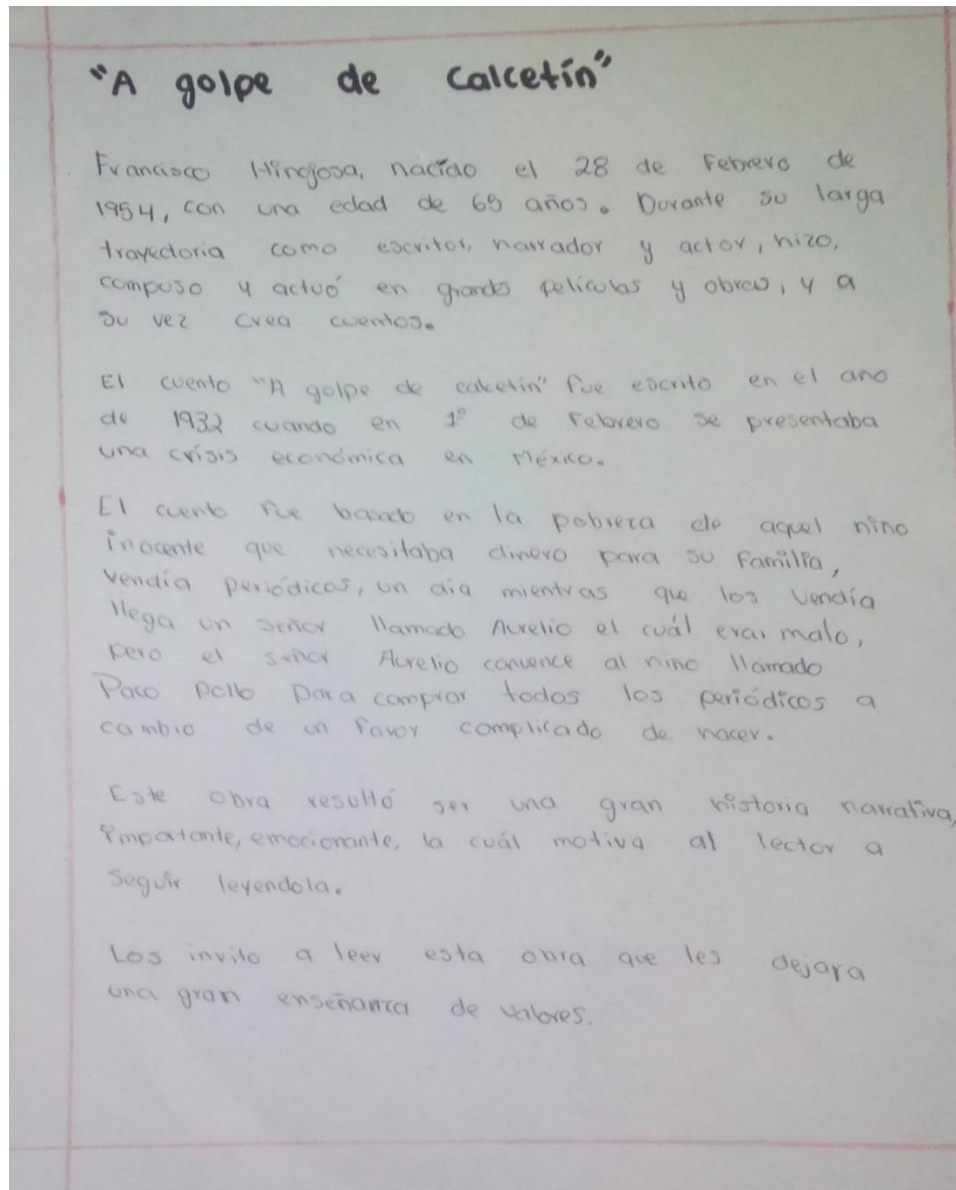 "A golpe de Calcetín"
Francisco Hinojosa, nacido el 28 de Febrero de
1954, con una edad de 65 años. Durante su larga
trayectoria como escritor, narrador y actor, hizo,
compuso y actuó en grands películas y obras, y a
su vez crea cuentos.
El cuento "A golpe de calcetin" fue escrito en el ano
de 1932 cuando en 1° de Febrero se presentaba
una crísis económica en México.
El cuento fue basado en la pobreza de aquel nino
inocente que necesitaba dinero para su familia,
vendía periódicos, un día mientras que los vendía
llega un señor llamado Aurelio el cuál era malo,
pero el señor Aurelio convence al nino llamado
Paco pollo para comprar todos los periódicos a
cambio de un favor complicado de hacer.
Este obra resultó ser una gran historia narrativa,
importante, emocionante, la cuál motiva al lector a
seguir leyendola.
Los invito a leer esta obra que les dejara
una gran enseñanza de valores.